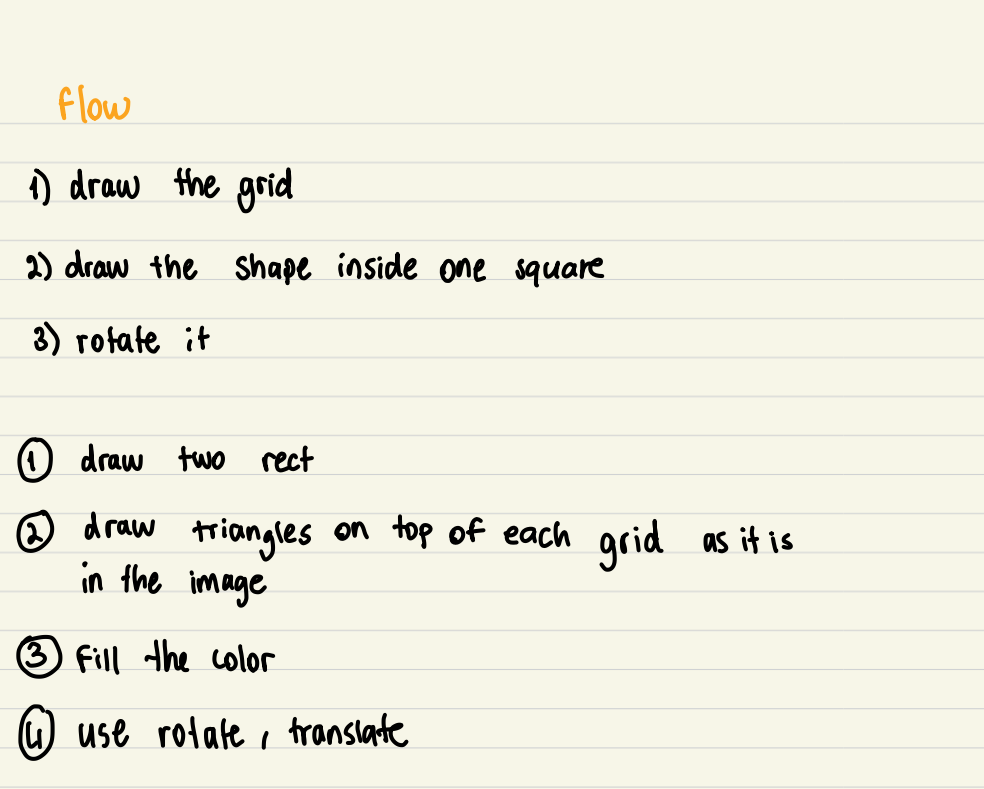 flow
1) draw the grid
2) draw the shape inside one square
3) rotate it
① draw two rect
② draw triangles on top of each grid as it is
in the image
③ fill the color
④ use rotate, translate